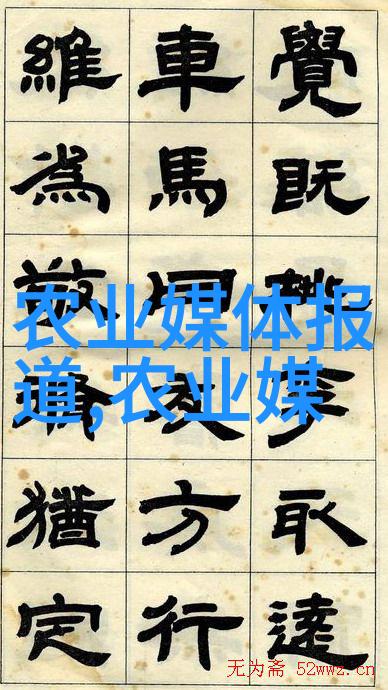 覺既取達
車馬同方行
維為敬猶定
农业媒体报
道,农业媒
无为斋 52wwz.cn